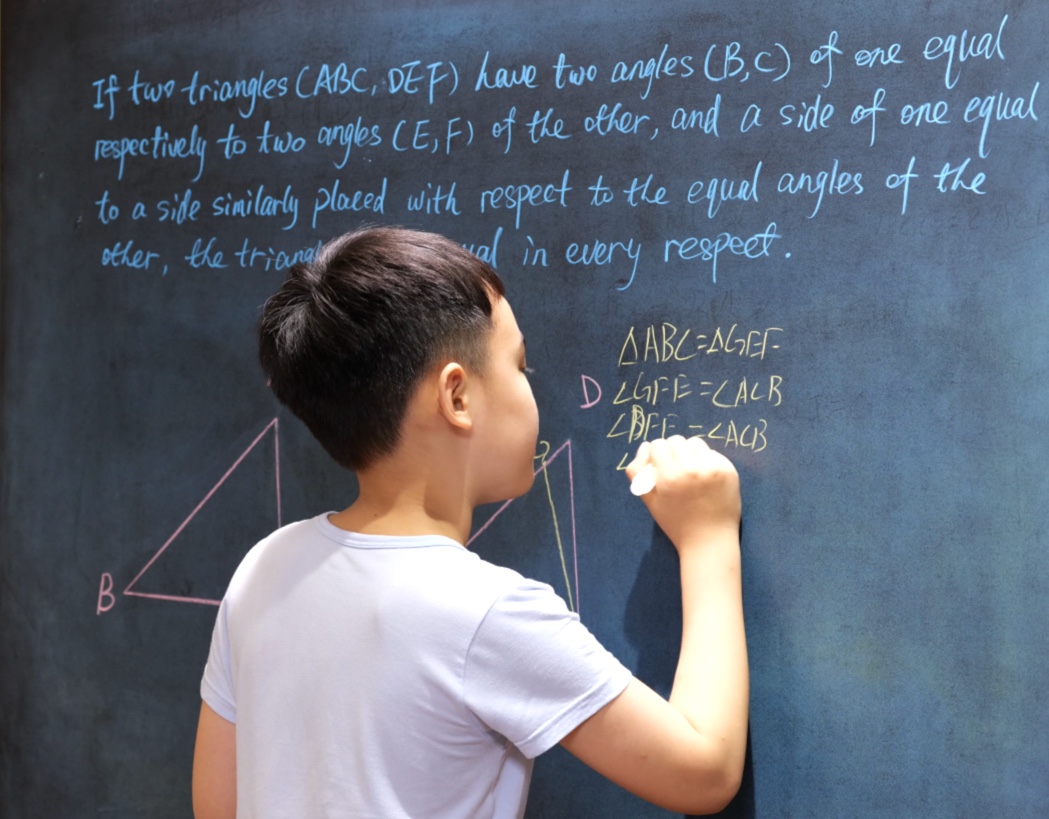 If two triangles (ABC, DEF) have two angles (B,C) of one equal
respectively to two angles (E,F) of the other, and a side of one equal
to a side similarly placed with respect to the equal angles of the
other, the in every respect.
ΔABC=ΔGEF
D
∠GFE=∠ACB
∠DFE=∠ACB
∠
B